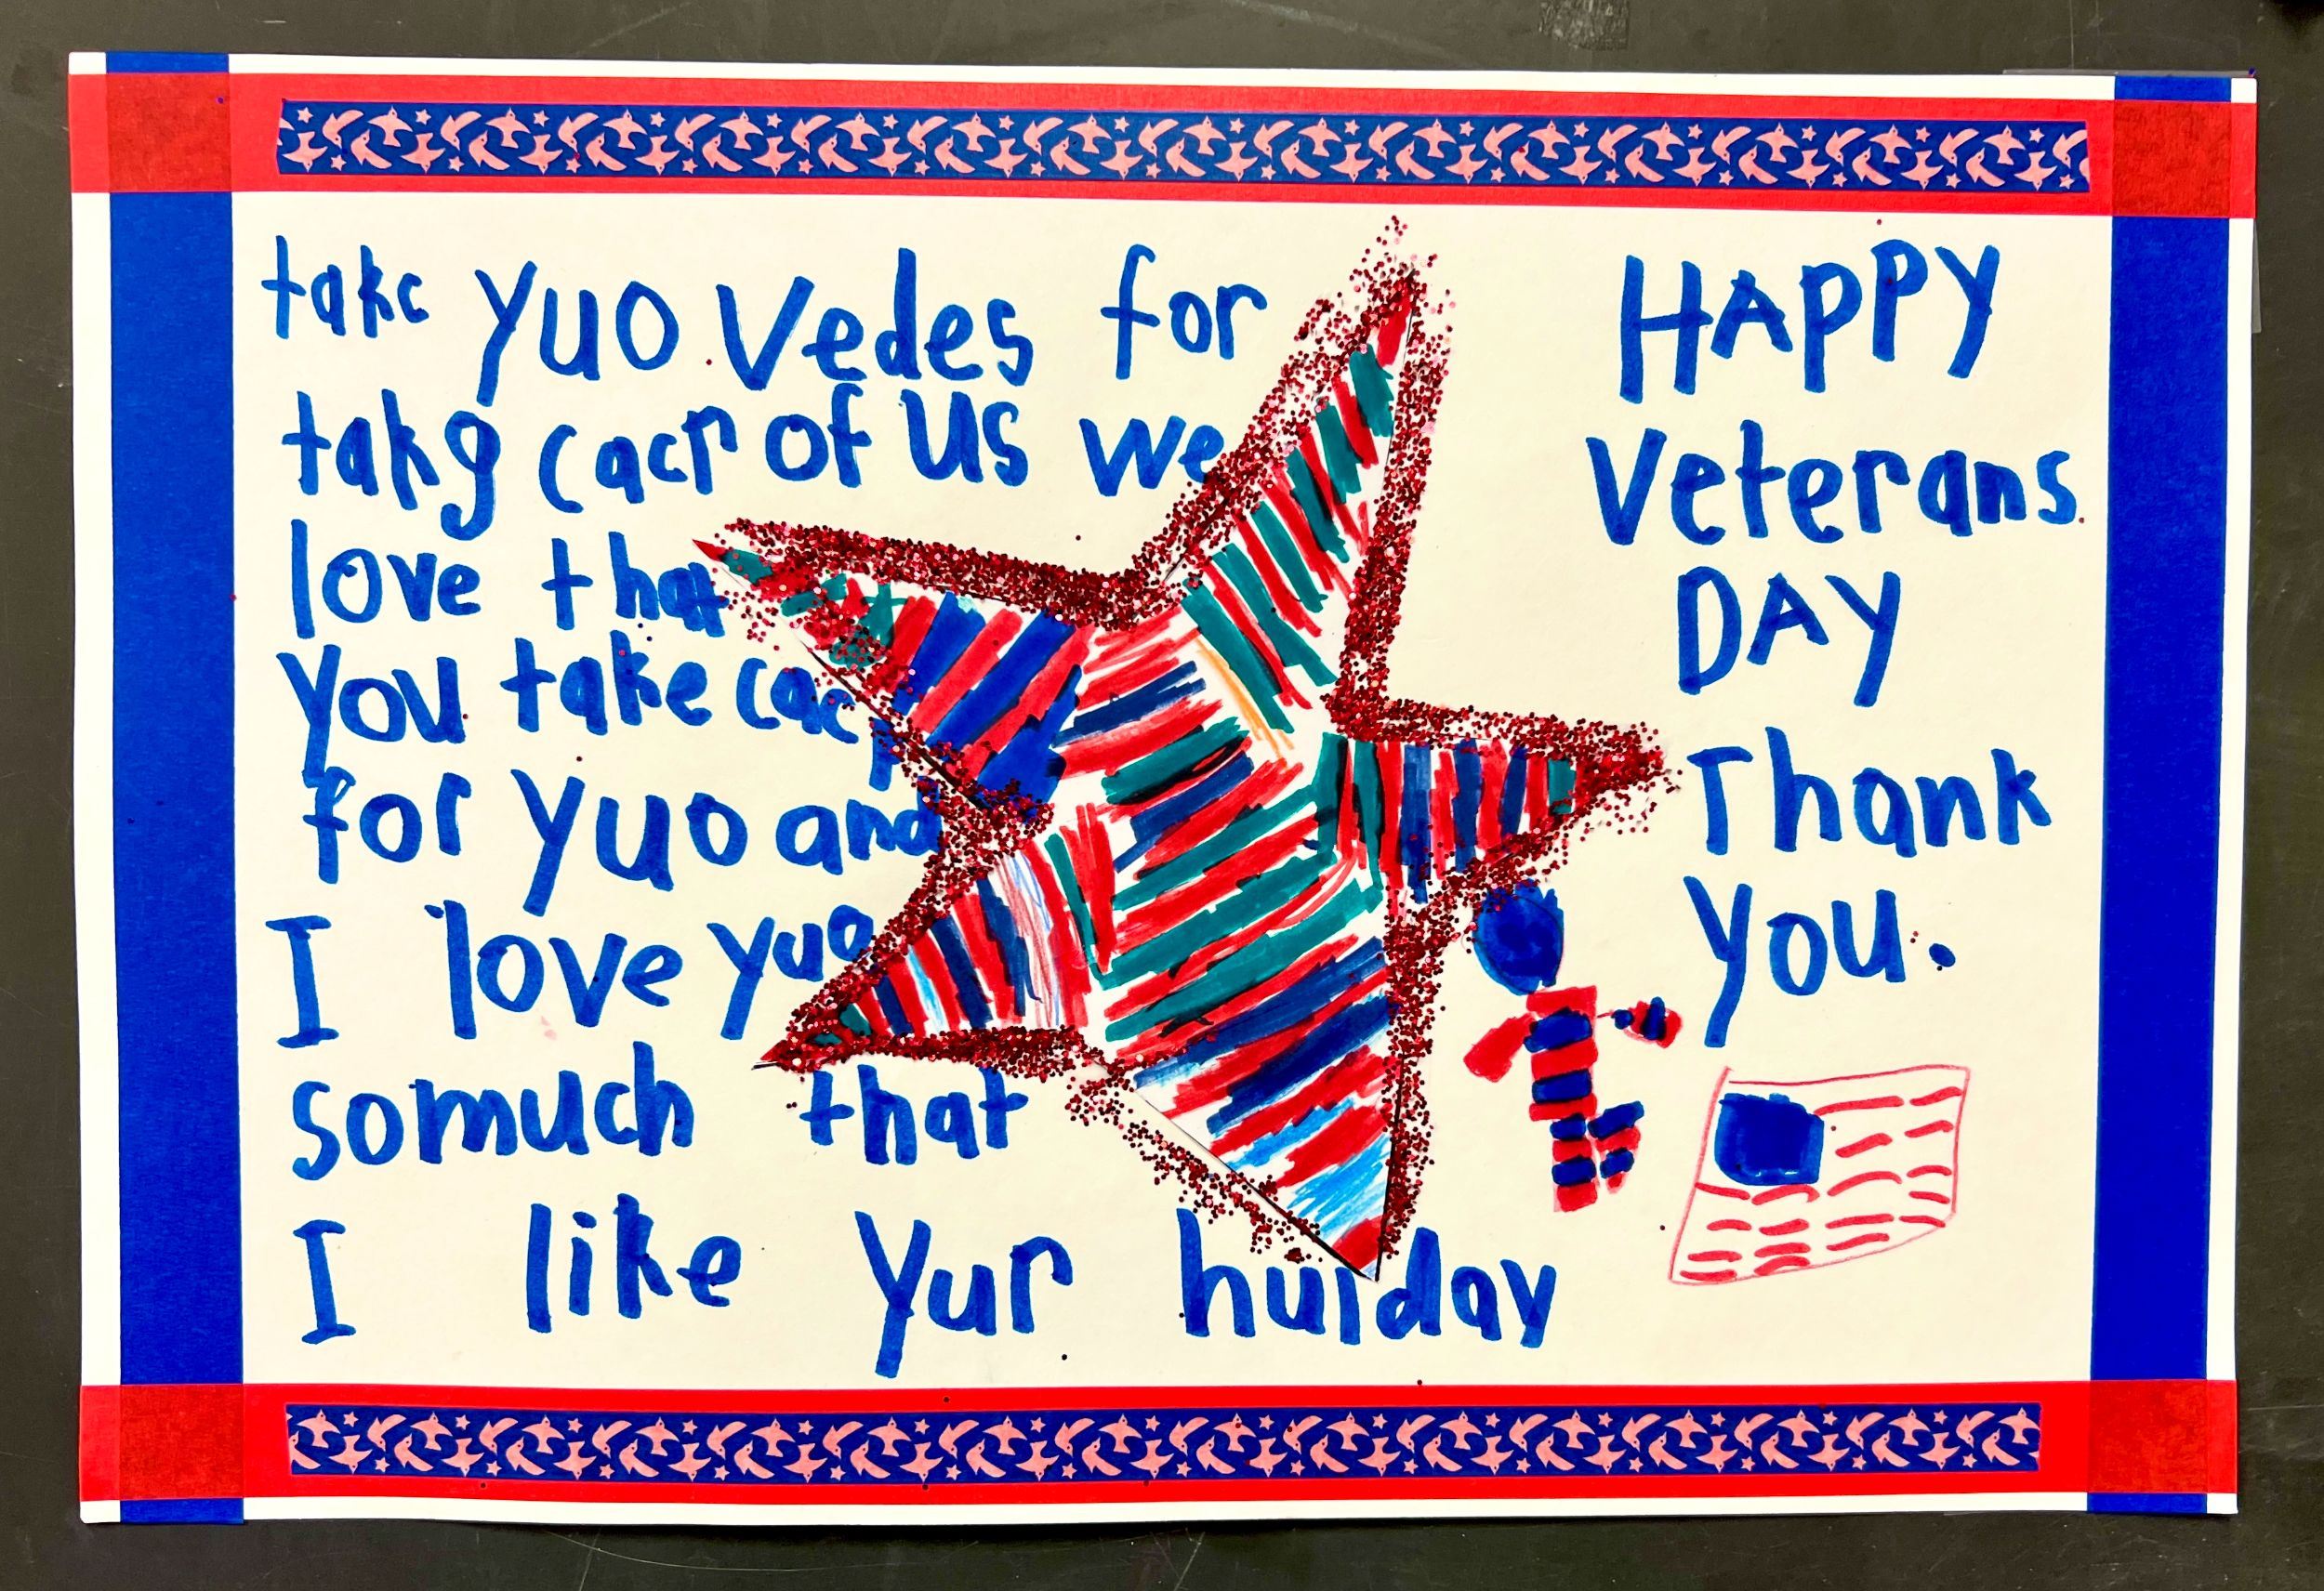 takc yuo Vedes for
takg cacr of us we
love that
you take cacr
for yuo and
I love yuo
somuch that
I like yur huIday
HAPPY
Veterans
DAY
Thank
you.